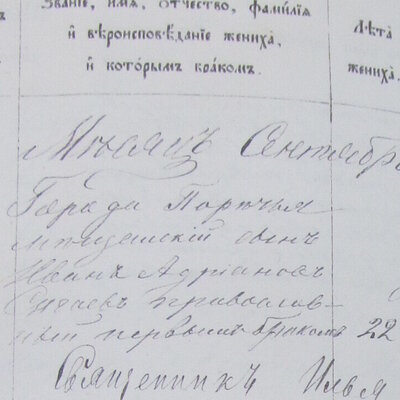 Званіе, имя, отчество, фамилія
и вѣроисповѣданіе жениха,
и которымъ бракомъ.
Лѣта
жениха.
Мѣсяцъ Сентябрь
Города Поречья
мѣщанскій сынъ
Иванъ Адріановъ
православ-
ный первымъ бракомъ 22
Священникъ Илья